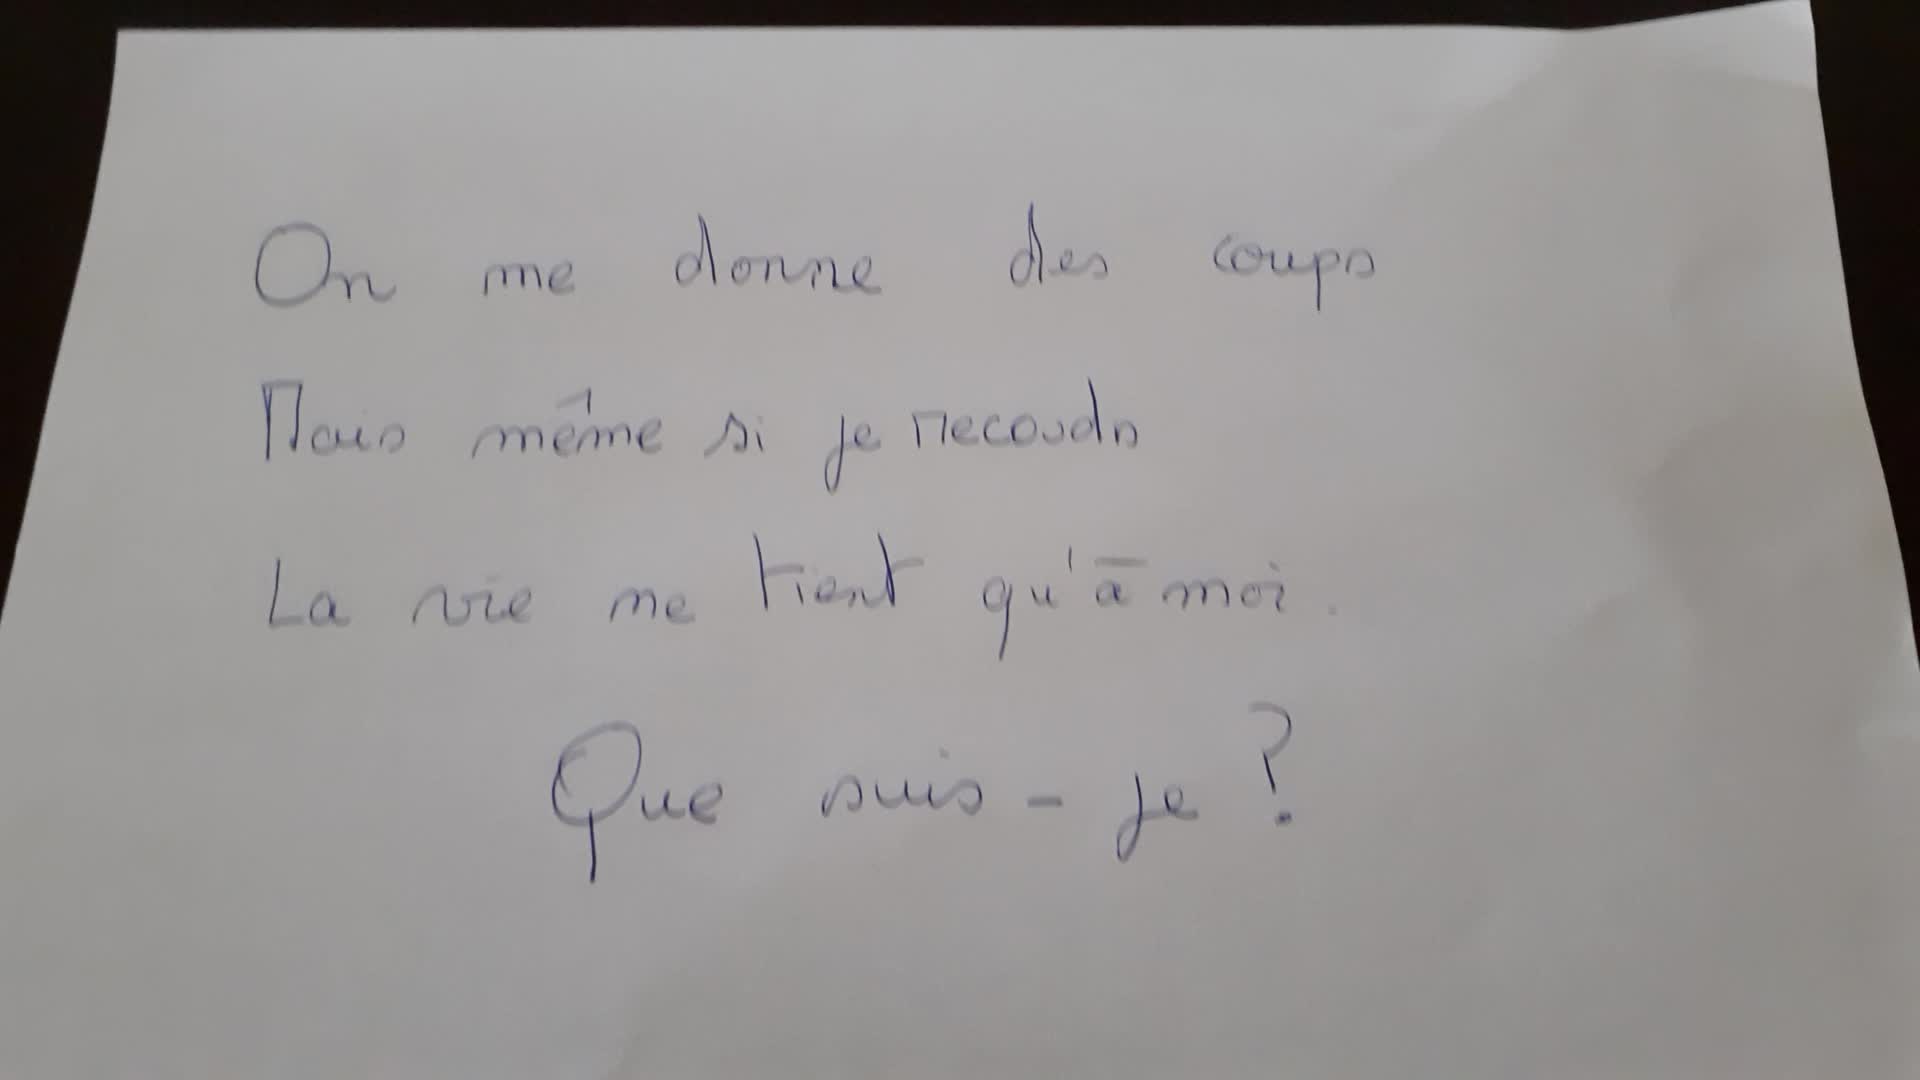 On me donne des coups
Mais même si je recouds
La vie ne tient qu'à moi.
Que suis-je ?